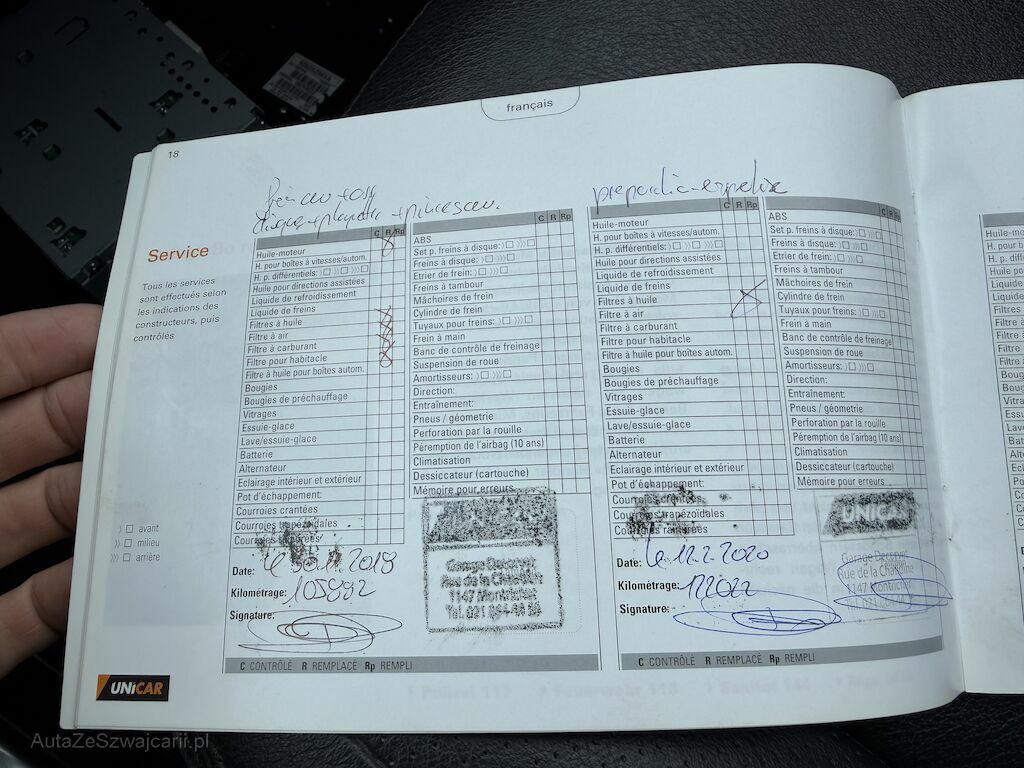 français
18
Service
Tous les services
sont effectués selon
les indications des
constructeurs, puis
contrôlés
〉 avant
〉〉 milieu
〉〉〉 arrière
UNiCAR
disque + plaquette + pinces
C R Rp
Huile-moteur
H. pour boîtes à vitesses/autom.
H. p. différentiels: 〉 〉〉 〉〉〉
Huile pour directions assistées
Liquide de refroidissement
Liquide de freins
Filtres à huile
Filtre à air
Filtre à carburant
Filtre pour habitacle
Filtre à huile pour boîtes autom.
Bougies
Bougies de préchauffage
Vitrages
Essuie-glace
Lave/essuie-glace
Batterie
Alternateur
Eclairage intérieur et extérieur
Pot d'échappement:
Courroies crantées
Courroies trapézoïdales
Courroies rainurées
Date: 2018
Kilométrage: 105892
Signature:
C R Rp
ABS
Set p. freins à disque: 〉 〉〉〉
Freins à disque: 〉 〉〉〉
Etrier de frein: 〉 〉〉〉
Freins à tambour
Mâchoires de frein
Cylindre de frein
Tuyaux pour freins: 〉 〉〉〉
Frein à main
Banc de contrôle de freinage
Suspension de roue
Amortisseurs: 〉 〉〉〉
Direction:
Entraînement:
Pneus / géométrie
Perforation par la rouille
Péremption de l'airbag (10 ans)
Climatisation
Dessiccateur (cartouche)
Mémoire pour erreurs
Garage Decoppet
Rue de la Chaudine
1147 Montricher
Tél. 021
C CONTRÔLÉ R REMPLACÉ Rp REMPLI
C R Rp
Huile-moteur
H. pour boîtes à vitesses/autom.
H. p. différentiels: 〉 〉〉 〉〉〉
Huile pour directions assistées
Liquide de refroidissement
Liquide de freins
Filtres à huile
Filtre à air
Filtre à carburant
Filtre pour habitacle
Filtre à huile pour boîtes autom.
Bougies
Bougies de préchauffage
Vitrages
Essuie-glace
Lave/essuie-glace
Batterie
Alternateur
Eclairage intérieur et extérieur
Pot d'échappement:
Courroies crantées
Courroies trapézoïdales
Courroies rainurées
Date: le 12.2.2020
Kilométrage: 122022
Signature:
C R Rp
ABS
Set p. freins à disque: 〉 〉〉〉
Freins à disque: 〉 〉〉〉
Etrier de frein: 〉 〉〉〉
Freins à tambour
Mâchoires de frein
Cylindre de frein
Tuyaux pour freins: 〉 〉〉〉
Frein à main
Banc de contrôle de freinage
Suspension de roue
Amortisseurs: 〉 〉〉〉
Direction:
Entraînement:
Pneus / géométrie
Perforation par la rouille
Péremption de l'airbag (10 ans)
Climatisation
Dessiccateur (cartouche)
Mémoire pour erreurs
UNICAR
Garage Decoppet
Rue de la Chaudine
1147 Montricher
Tél. 021
C CONTRÔLÉ R REMPLACÉ Rp REMPLI
AutaZeSzwajcarii.pl